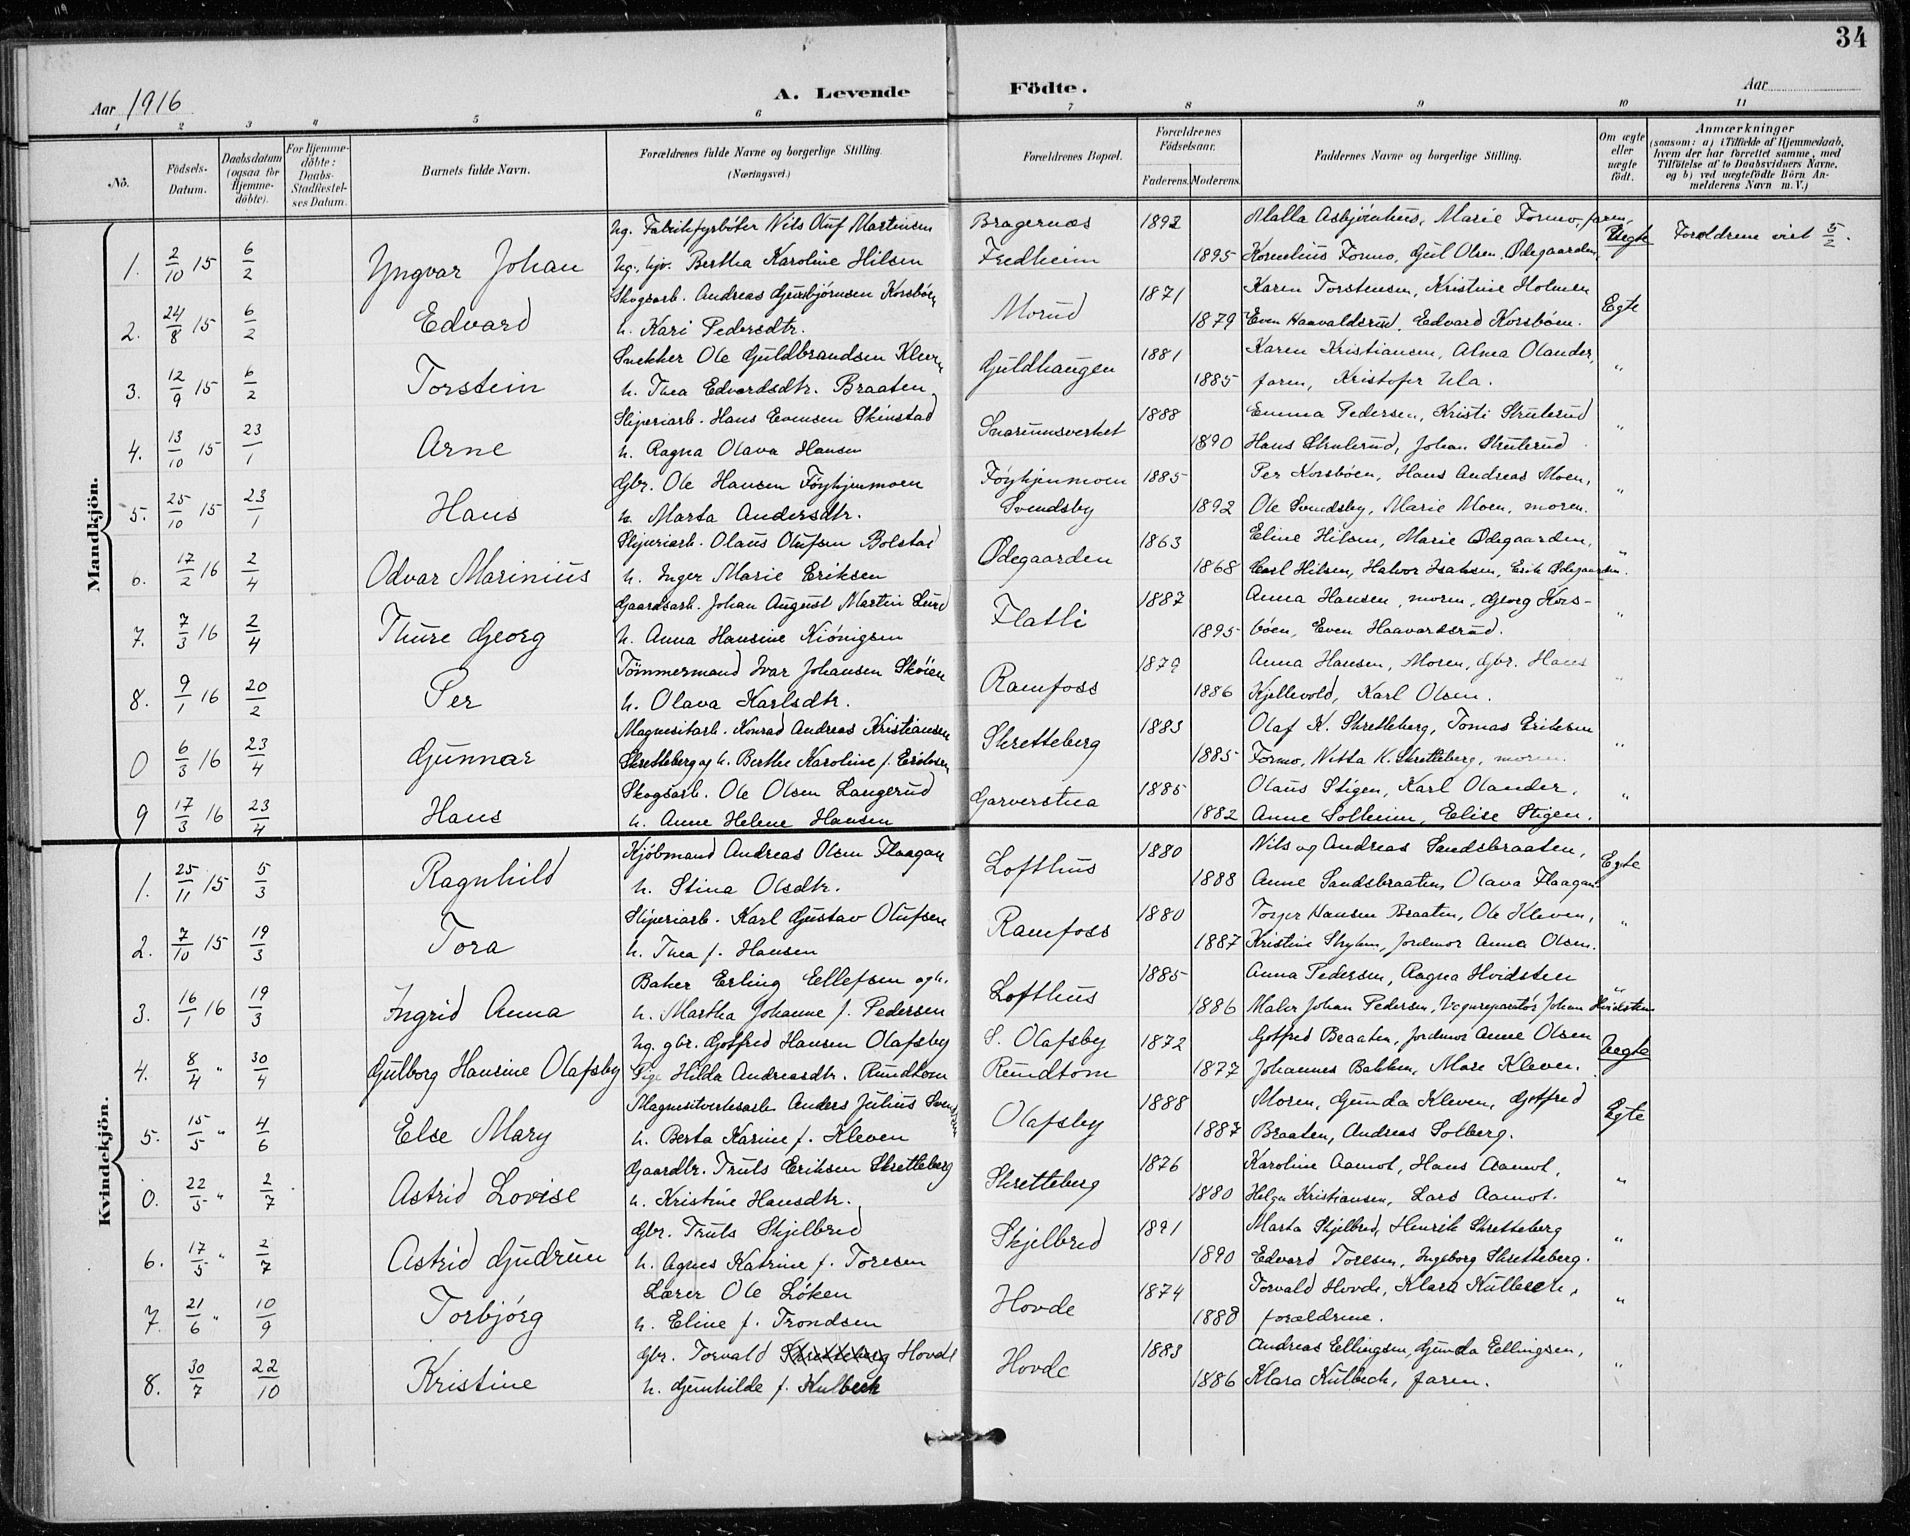 34
Aar 1916 A. Levende Födte. Aar
1 2 3 4 5 6 7 8 9 10 11
No. Födsels-Datum. Daabsdatum (ogsaa for Hjemmedöbte). For Hjemmedöbte: Daabs-Stadfæstelses Datum. Barnets fulde Navn. Forældrenes fulde Navne og borgerlige Stilling. (Næringsvei.) Forældrenes Bopæl. Forældrenes Födselsaar. Faderens. Moderens. Faddernes Navne og borgerlige Stilling. Om ægte eller uægte födt. Anmærkninger (saasom: a) i Tilfælde af Hjemmedaab, hvem der har forrettet samme, med Tilföielse af to Daabsvidners Navne, og b) ved uægtefödte Börn Anmelderens Navn m. V.)
Mandkjön.
Ug. Fabrikfyrbøter Nils Oluf Martinsen Bragernæs 1892 Malla Asbjörnhus, Marie Formo, faren,
1. 2/10 15 6/2 Yngvar Johan Ug. hjv. Bertha Karoline Hilsen Fredheim 1895 Kornelius Formo, Gul Olsen Ødegaarden, Uegte Foreldrene viet 5/2.
Skogsarb. Andreas Gunbjörnsen Korsböen 1871 Karen Torstensen, Kristine Holmen
2. 24/8 15 6/2 Edvard h. Kari Pedersdtr. Morud 1879 Even Haavaldsrud, Edvard Korsböen. Egte
Snekker Ole Guldbrandsen Kleven 1881 Karen Kristiansen, Alma Olander,
3. 12/9 15 6/2 Torstein h. Thea Edvardsdtr. Braaten Guldhaugen 1885 faren, Kristofer Ula. "
Sliperiarb. Hans Evensen Skinstad 1888 Emma Pedersen, Kristi Skulerud
4. 13/10 15 23/1 Arne h. Ragna Olava Hansen Snarumsverket 1890 Hans Skulerud, Johan Skulerud. "
Gbr. Ole Hansen Föyhjenmoen Föyhjenmoen 1885 Per Korsböen, Hans Andreas Moen,
5. 25/10 15 23/1 Hans h. Marta Andersdtr. Svendsby 1892 Ole Svendsby, Marie Moen, moren. "
Sliperiarb. Olaus Olufsen Bolstad 1863 Eline Hilsen, Marie Ødegaarden,
6. 17/2 16 2/4 Odvar Marinius h. Inger Marie Eriksen Ødegaarden 1868 Carl Hilsen, Halvor Isaksen, Erik Ødegaarden. "
Gaardsarb. Johan August Martin Lund 1887 Anna Hansen, moren, Georg Kors-
7. 7/3 16 2/4 Thure Georg h. Anna Hansine Kiönigsen Flatli 1895 böen, Even Haavardsrud. "
Tömmermand Ivar Johansen Sköien 1879 Anna Hansen, Moren, Gbr. Hans
8. 9/1 16 20/2 Per h. Olava Karlsdtr. Ramfoss 1886 Kjellevold, Karl Olsen. "
Magnesitarb. Konrad Andreas Kristiansen 1883 Olaf K. Skretteberg, Tomas Eriksen
0 6/3 16 23/4 Gunnar Skretteberg og h. Berthe Karoline f. Eriksen Skretteberg 1885 Formo, Nitta K. Skretteberg, moren. "
Skogsarb. Ole Olsen Langerud 1885 Olaus Stigen, Karl Olander,
9 17/3 16 23/4 Hans h. Anne Helene Hansen Garverstua 1882 Anne Solheim, Elise Stigen. "
Kvindekjön.
Kjöbmand Andreas Olsen Flaagan 1880 Nils og Andreas Sandsbraaten,
1. 25/11 15 5/3 Ragnhild h. Stina Olsdtr. Lofthus 1888 Anne Sandsbraaten, Olava Flaagan. Egte
Sliperiarb. Karl Gustav Olufsen 1880 Torger Hansen Braaten, Ole Kleven,
2. 7/10 15 19/3 Tora h. Thea f. Hansen Ramfoss 1887 Kristine, Jordmor Anna Olsen. "
Baker Erling Ellefsen og h. 1885 Anna Pedersen, Ragna Hvidsteen
3. 16/1 16 19/3 Ingrid Anna h. Martha Johanne f. Pedersen Lofthus 1886 Maler Johan Pedersen, Vognreparatör Johan Hvidsteen "
Ug. gbr. Gotfred Hansen Olafsby S. Olafsby 1872 Gotfred Braaten, Jordmor Anne Olsen
4. 8/4 " 30/4 Gulborg Hansine Olafsby Pige Hilda Andreasdtr. Rundtom Rundtom 1877 Johannes Bakken, Mare Kleven. Uegte
Magnesitverksarb. Anders Julius Svendsen 1888 Moren, Gunda Kleven, Gotfred
5. 15/5 " 4/6 Else Mary h. Berta Karine f. Kleven Olafsby 1887 Braaten, Andreas Solberg. Egte
Gaardbr. Truls Eriksen Skretteberg 1876 Karoline Aamot, Hans Aamot,
0. 22/5 " 2/7 Astrid Lovise h. Kristine Hansdtr. Skretteberg 1880 Helga Kristiansen, Lars Aamot. "
Gbr. Truls Skjelbred 1891 Marta Skjelbred, Henrik Skretteberg
6. 17/5 " 2/7 Astrid Gudrun h. Agnes Katrine f. Toresen Skjelbred 1890 Edvard Toresen, Ingeborg Skretteberg. "
Lærer Ole Løken 1874 Torvald Hovde, Klara Kulbeck,
7. 21/6 " 10/9 Torbjørg h. Eline f. Trondsen Hovde 1888 forældrene. "
Gbr. Torvald Skretteberg Hovde 1883 Andreas Ellingsen, Gunda Ellingsen,
8. 30/7 22/10 Kristine h. Gunhilde f. Kulbeck Hovde 1886 Klara Kulbeck, faren. "